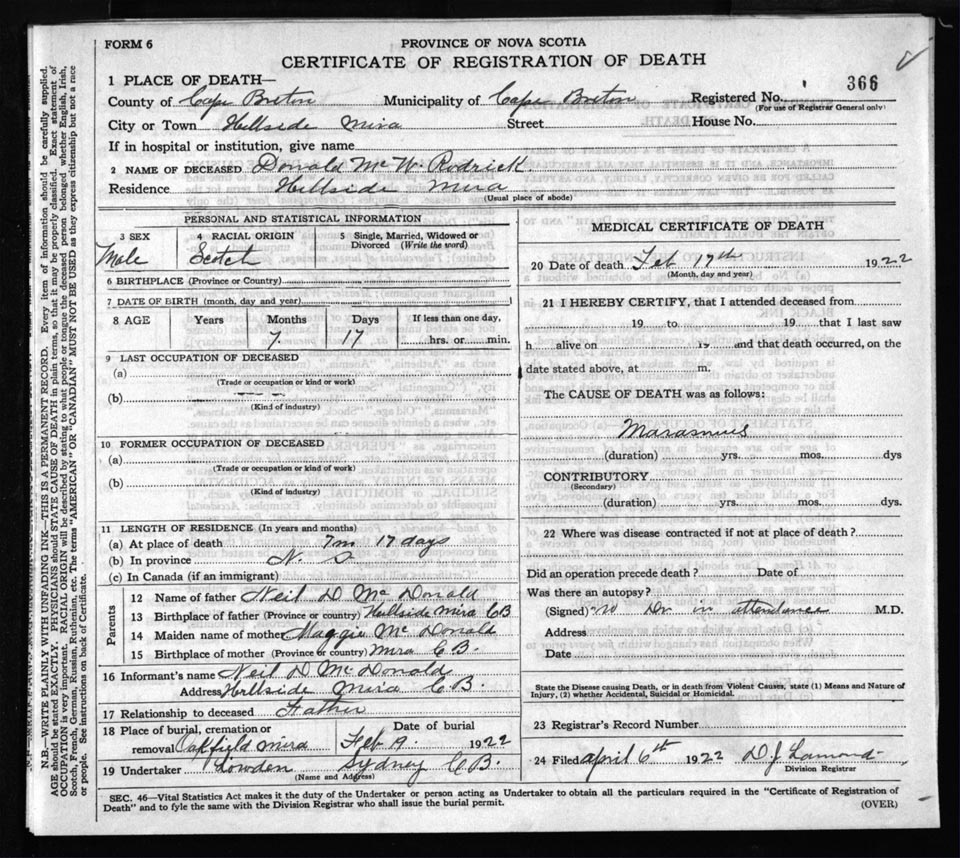 FORM 6
PROVINCE OF NOVA SCOTIA
CERTIFICATE OF REGISTRATION OF DEATH
1 PLACE OF DEATH—
County of Cape Breton Municipality of Cape Breton Registered No. 366
(For use of Registrar General only)
City or Town Hillside Mira Street House No.
If in hospital or institution, give name
2 NAME OF DECEASED Donald Mc W. Rodrick
Residence Hillside Mira
(Usual place of abode)
PERSONAL AND STATISTICAL INFORMATION
3 SEX
Male
4 RACIAL ORIGIN
Scotch
5 Single, Married, Widowed or
Divorced (Write the word)
6 BIRTHPLACE (Province or Country)
7 DATE OF BIRTH (month, day and year)
8 AGE Years Months Days If less than one day,
7 17 hrs. or min.
9 LAST OCCUPATION OF DECEASED
(a)
(Trade or occupation or kind or work)
(b)
(Kind of industry)
10 FORMER OCCUPATION OF DECEASED
(a)
(Trade or occupation or kind or work)
(b)
(Kind of industry)
11 LENGTH OF RESIDENCE (In years and months)
(a) At place of death 7m 17 days
(b) In province N. S
(c) In Canada (if an immigrant)
Parents
12 Name of father Neil D Mc Donald
13 Birthplace of father (Province or country) Hillside Mira CB
14 Maiden name of mother Maggie Mc Donald
15 Birthplace of mother (Province or country) Mira C.B.
16 Informant's name Neil D McDonald
Address Hillside Mira C.B.
17 Relationship to deceased Father
18 Place of burial, cremation or Date of burial
removal Oakfield Mira Feb 19. 1922
19 Undertaker Lowden Sydney C.B.
(Name and Address)
MEDICAL CERTIFICATE OF DEATH
20 Date of death Feb 17th 1922
(Month, day and year)
21 I HEREBY CERTIFY, that I attended deceased from
19 to 19 that I last saw
h alive on 19 and that death occurred, on the
date stated above, at m.
The CAUSE OF DEATH was as follows:
Maramus
(duration) yrs. mos. dys
CONTRIBUTORY
(Secondary)
(duration) yrs. mos. dys.
22 Where was disease contracted if not at place of death?
Did an operation precede death? Date of
Was there an autopsy?
(Signed) no Dr in attendance M.D.
Address
Date
State the Disease causing Death, or in death from Violent Causes, state (1) Means and Nature of
Injury, (2) whether Accidental, Suicidal or Homicidal.
23 Registrar's Record Number
24 Filed April 6th 1922 D. J. Lamond
Division Registrar
SEC. 46—Vital Statistics Act makes it the duty of the Undertaker or person acting as Undertaker to obtain all the particulars required in the "Certificate of Registration of
Death" and to fyle the same with the Division Registrar who shall issue the burial permit.
(OVER)
N.B.—WRITE PLAINLY WITH UNFADING INK—THIS IS A PERMANENT RECORD. Every item of information should be carefully supplied.
AGE should be stated EXACTLY. PHYSICIANS should STATE CAUSE OF DEATH in plain terms, so that it may be properly classified. Exact statement of
OCCUPATION is very important. RACIAL ORIGIN will be described by stating to what people or tongue the deceased person belonged, whether English, Irish,
Scotch, French, German, Russian, Ruthenian, etc. The terms "AMERICAN" OR "CANADIAN" MUST NOT BE USED as they express citizenship but not a race
or people. See instructions on back of Certificate.